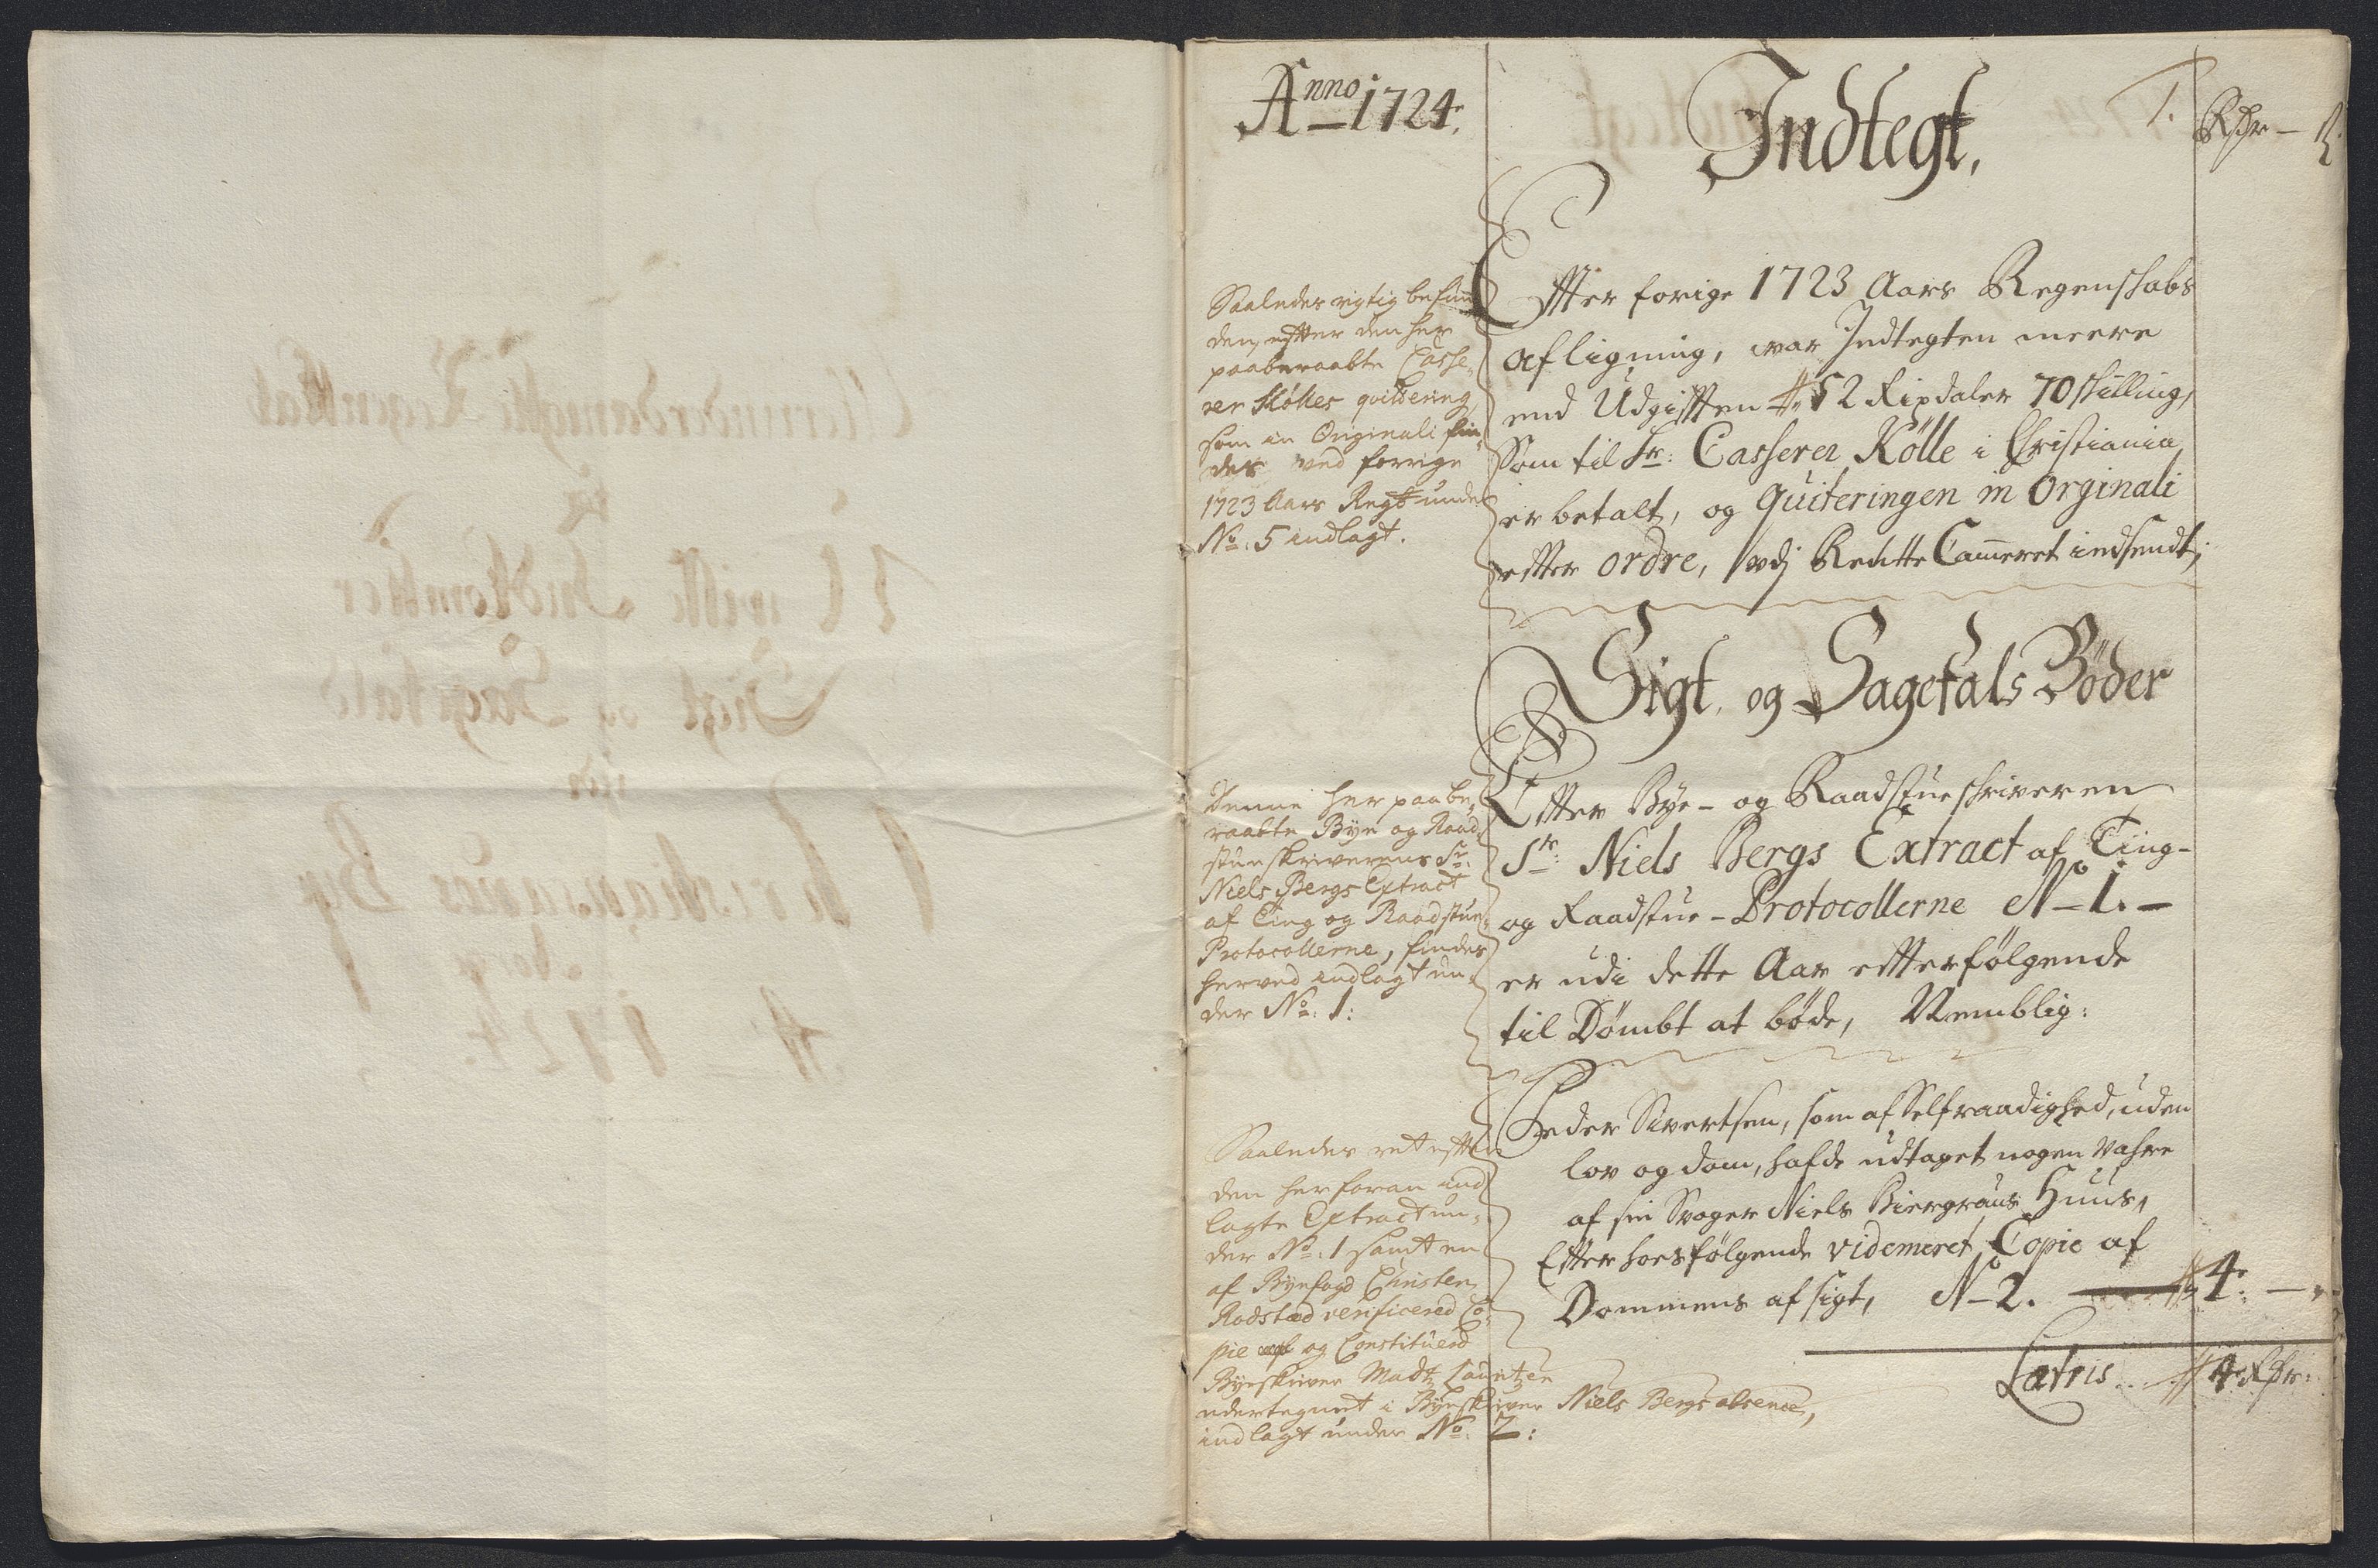 Anno 1724.
Indtegt,
1.
Rdr – ß.
Effter forige 1723 Aars Regenskabs
afligning, war Indtegten meere
end Udgifften # 52 Rixdaler 70 skilling,
Som til Sr: Casserer Kölle i Christiania
er betalt, og Quiteringen in Orginali
effter ordre, udj Rentte Cam̄eret indsendt;
Saaledes rigtig befun
den, effter den her
paaberaabte Casse,,
rer Kölles qvittering
som in Originali fin,,
des ved forrige
1723 Aars Regsk. under
No: 5 indlagt.
Sigt, og Sagefals Böder
Effter Bye- og Raadstueskriveren
Sr: Niels Bergs Extract af Ting-
og Raadstue-Protocollerne No 1. –
er udi dette Aar effterfølgende
til Dömbt at böde, Nemblig:
Denne her paabe,,
raabte Bye og Raad,,
stueskriverens Sr:
Niels Bergs Extract
af Ting og Raadstue,,
Protocollerne, findes
herved indlagt un,,
der No: 1:
Peder Sivertsen, som af Selfraadighed, uden
lov og dom, hafde udtaget nogen Vahre
af sin Svoger Niels Biergraus Huus,
Effter hoesfølgende videmeret Copie af
Dommens afsigt, No 2. — # 4: —
Latris # 4 Rdr:
Saaledes ret effter
den her foran ind
lagte Extract un,,
der No: 1 samt en
af Byefogd Christen
Rodsted verificered Co,,
pie og Constituerd
Byeskriver Madtz Lauritzen
udertegnet i Byeskriver Niels Bergs absence,
indlagt under No: 2: